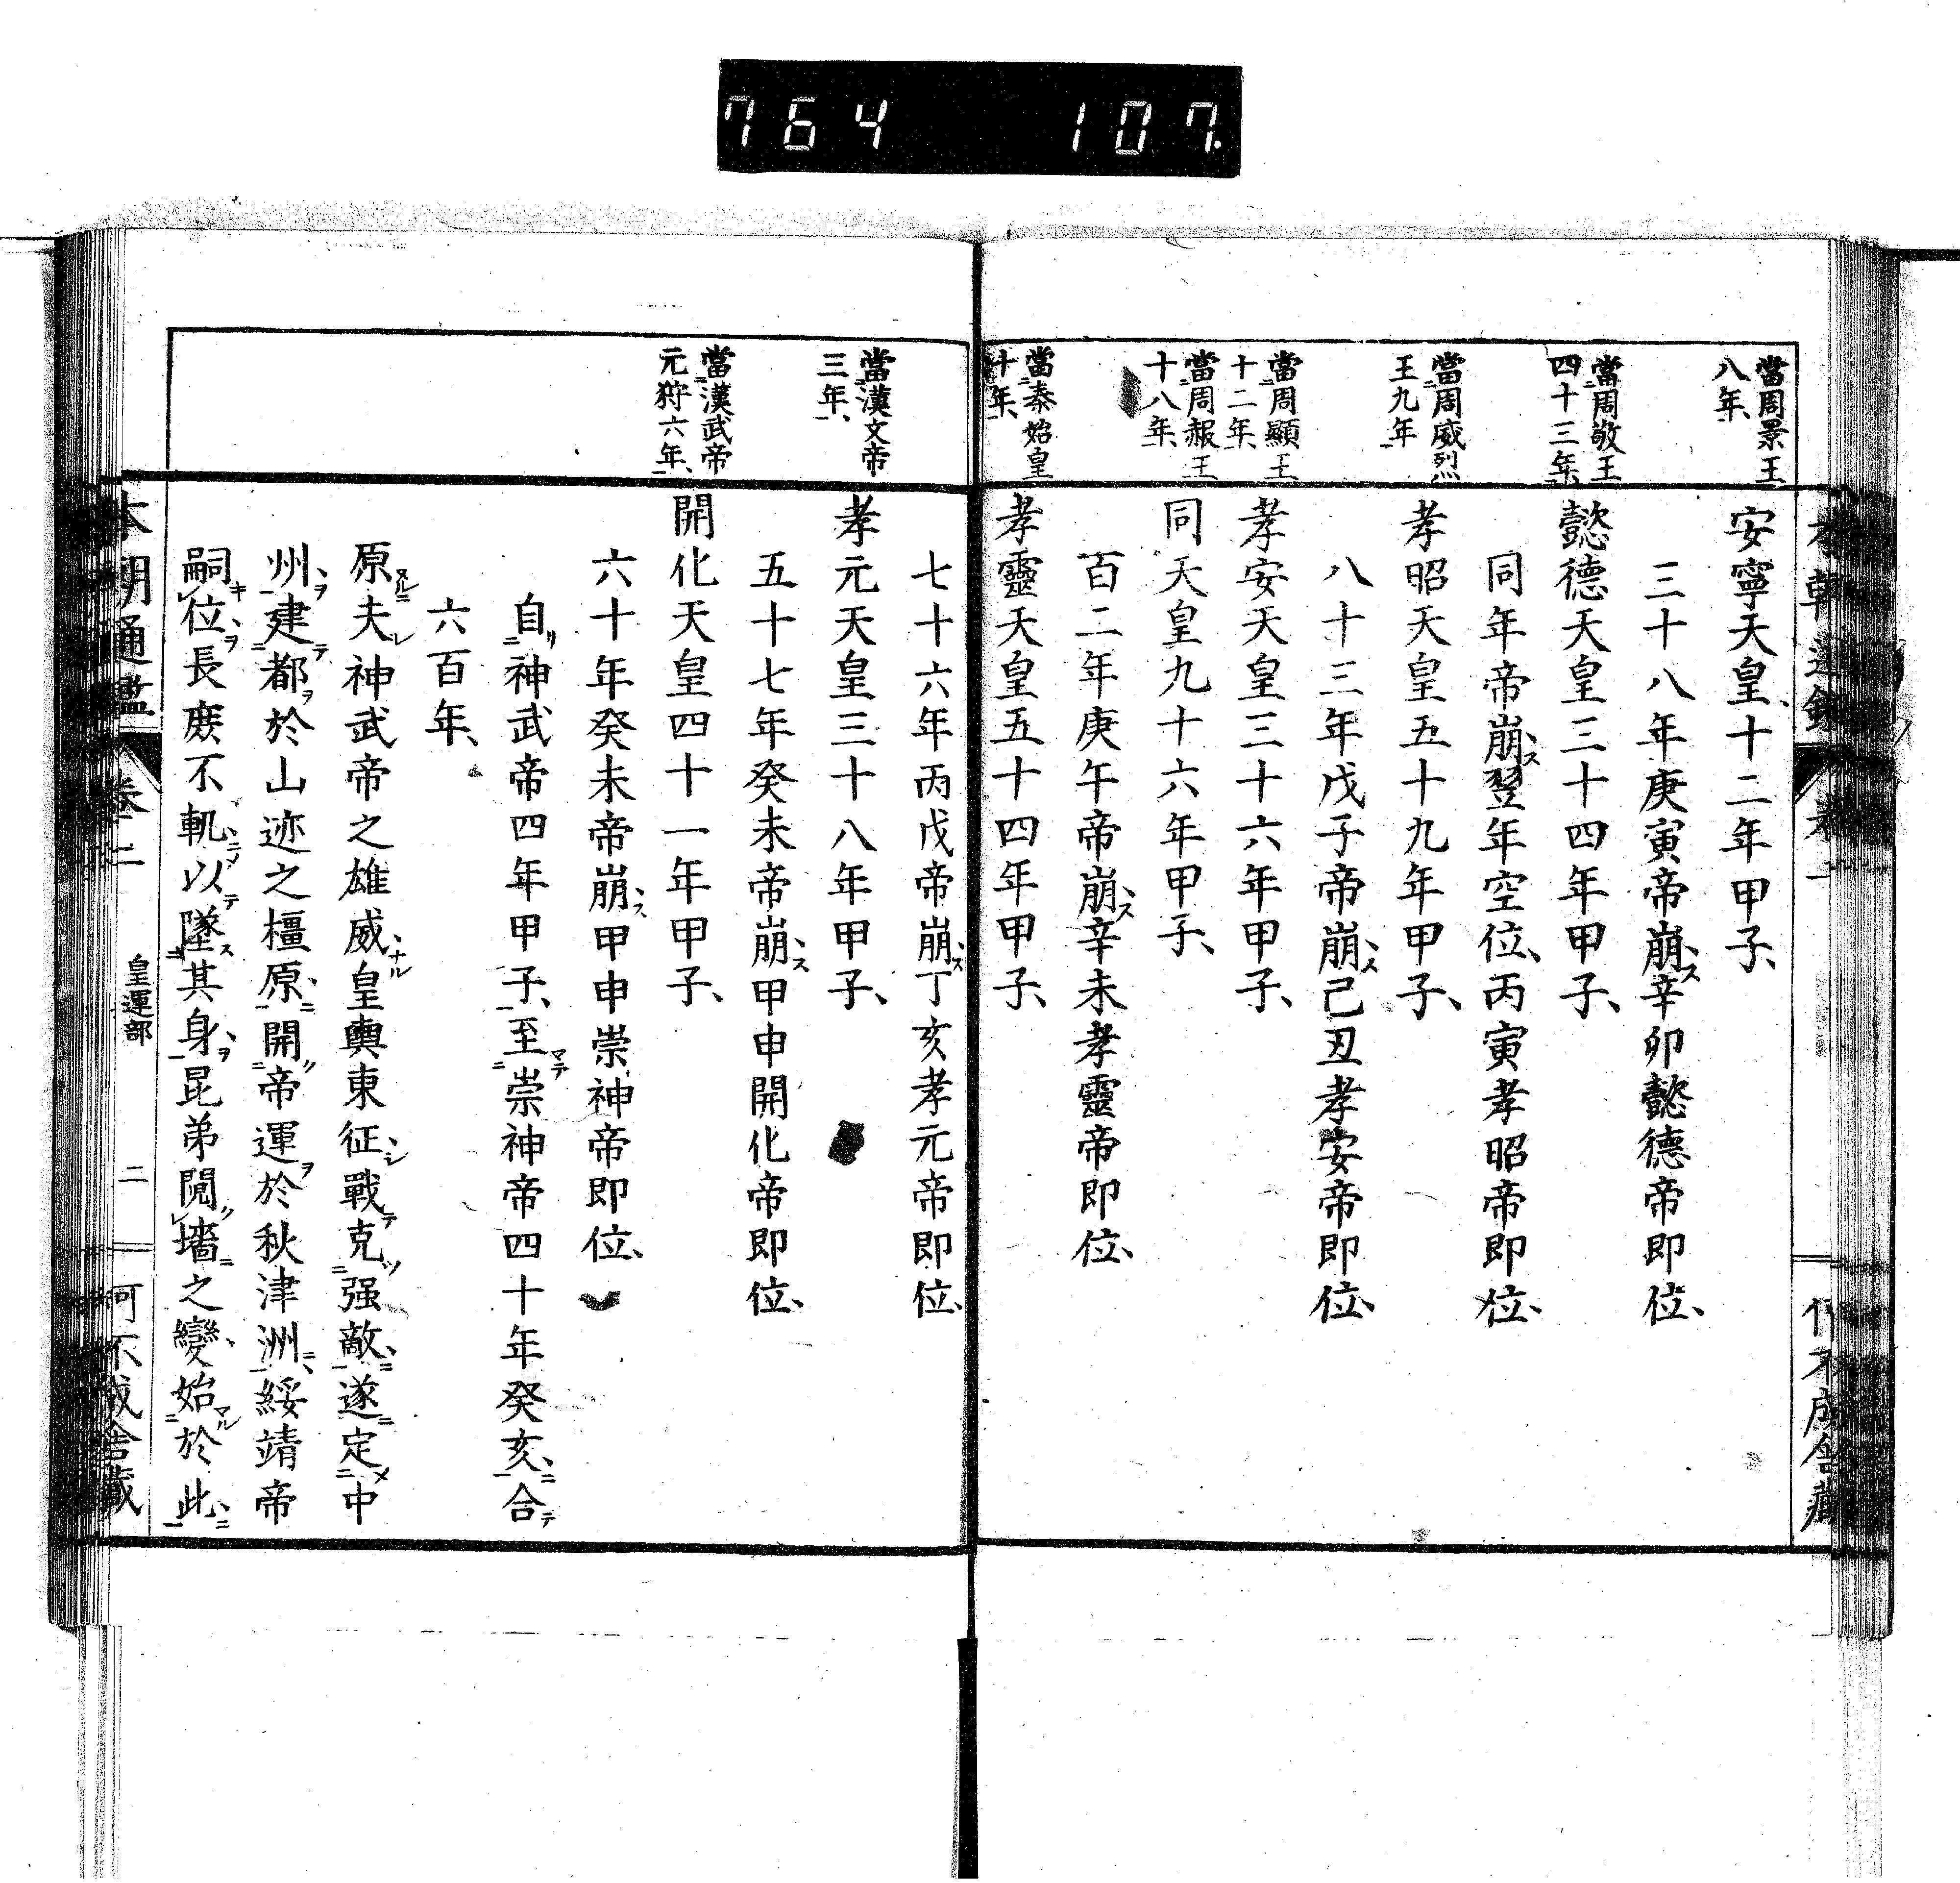 764 107.
當周景王
八年、
當周敬王
四十三年、
當周威烈
王九年
當周顯王
十二年、
當周赧王
十八年、
當秦始皇
十年、
安寧天皇十二年甲子、
三十八年庚寅帝崩ス、辛卯懿德帝即位、
懿德天皇三十四年甲子、
同年帝崩ス、翌年空位、丙寅孝昭帝即位、
孝昭天皇五十九年甲子、
八十三年戊子帝崩ス、己丑孝安帝即位、
孝安天皇三十六年甲子、
同天皇九十六年甲子、
百二年庚午帝崩ス、辛未孝靈帝即位、
孝靈天皇五十四年甲子、
當漢文帝
三年、
當漢武帝
元狩六年、
七十六年丙戌帝崩ス、丁亥孝元帝即位、
孝元天皇三十八年甲子、
五十七年癸未帝崩ス、甲申開化帝即位、
開化天皇四十一年甲子、
六十年癸未帝崩ス、甲申崇神帝即位、
自リ二神武帝四年甲子一、至マテ二崇神帝四十年癸亥一ニ、合テ
六百年、
原ヌルニ夫レ神武帝之雄威ナル、皇輿東征シ、戰テ克ツ二强敵一ニ、遂ニ定メ二中
州一ヲ、建テ二都ヲ於山迹之橿原一ニ、開リ二帝運ヲ於秋津洲一ニ、綏靖帝
嗣キレ位ヲ、長庶不軌ニシテ、以テ墜ス二其身一ヲ、昆弟鬩リレ墻ニ之變、始マル二於此一ニ、
本朝通鑑 卷二 皇運部 二 何不成舍藏